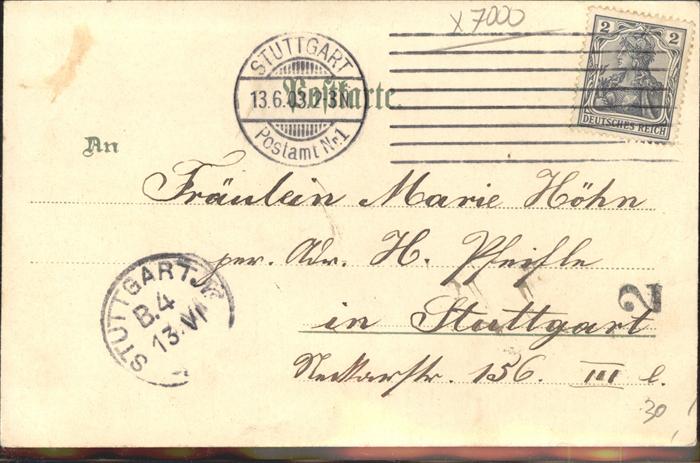 x 7000
STUTTGART
13.6.03.2-3N
Postamt Nr.1
Postkarte.
2 2
DEUTSCHES REICH
An
Fräulein Marie Höhn
per. Adr. H. Pfeifle
in Stuttgart
Neckarstr. 156. III l.
STUTTGART
B.4
13.VI
2
30